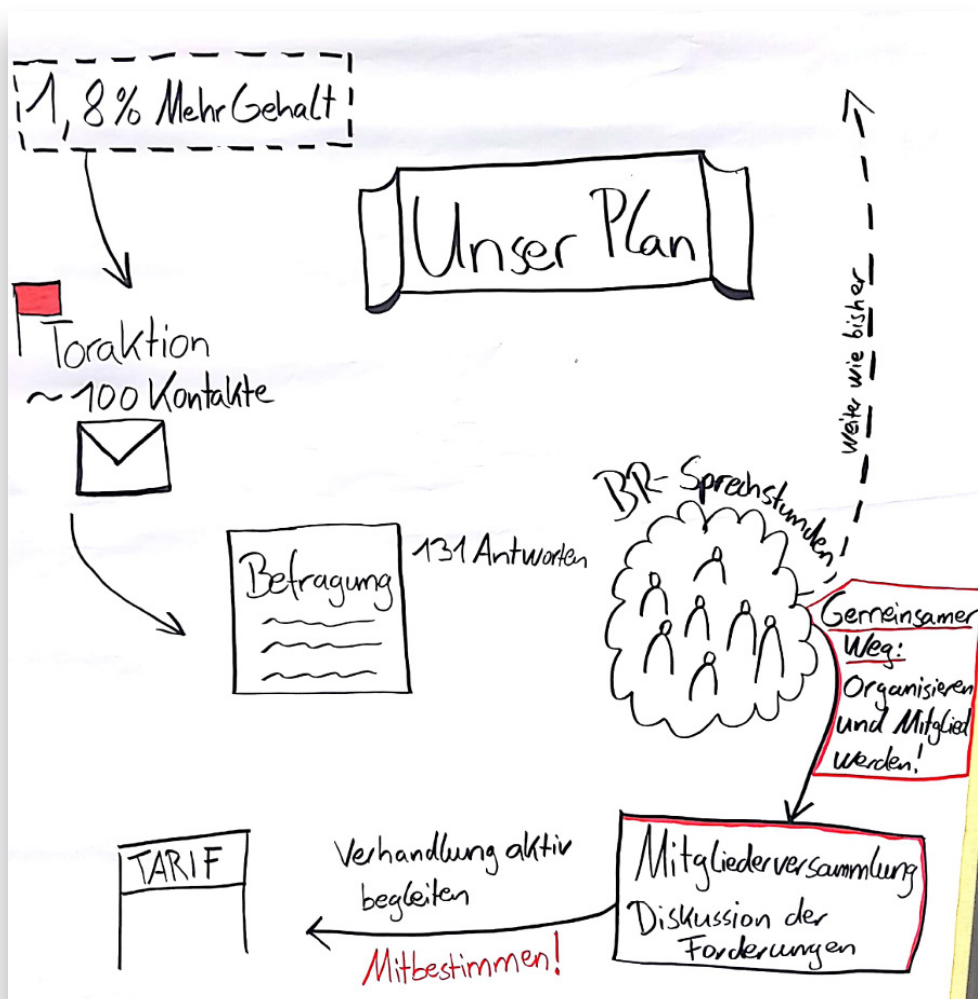 1,8% Mehr Gehalt
Unser Plan
Toraktion
~100 Kontakte
Befragung
131 Antworten
BR-Sprechstunden
Weiter wie bisher
Gemeinsamer
Weg:
Organisieren
und Mitglied
werden!
Mitgliederversammlung
Diskussion der
Forderungen
Verhandlung aktiv
begleiten
Mitbestimmen!
TARIF